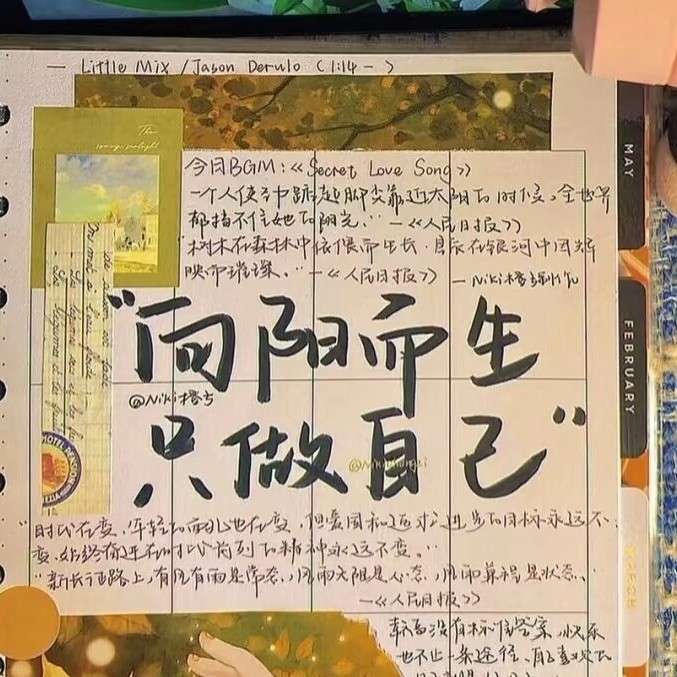 — Little Mix / Jason Derulo (1:14 — )
The
今日BGM:《Secret Love Song》
一个人使劲踮起脚尖靠近太阳的时候,全世界
都挡不住她的阳光。” —《人民日报》
“树木在森林中依偎而生长,星辰在银河中因辉
映而璀璨。” —《人民日报》
— Niki橙子制作
“向阳而生
@Niki橙子
只做自己”
“时代在变,年轻的面孔也在变,但爱国和追求进步的目标永远不
变,始终奋进在时代前列的精神永远不变。”
“新长征路上,有风有雨是常态,风雨无阻是心态,风雨兼程是状态。”
—《人民日报》
幸福没有标准答案,快乐
也不止一条途径,
MAY
FEBRUARY
MARCH
HOTEL